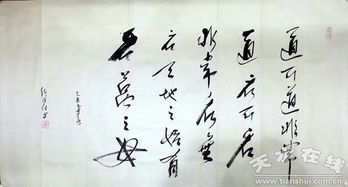 道可道非常
道名可名
非常名無
名天地之始有
名萬之母
天水在线
www.tianshui.com.cn